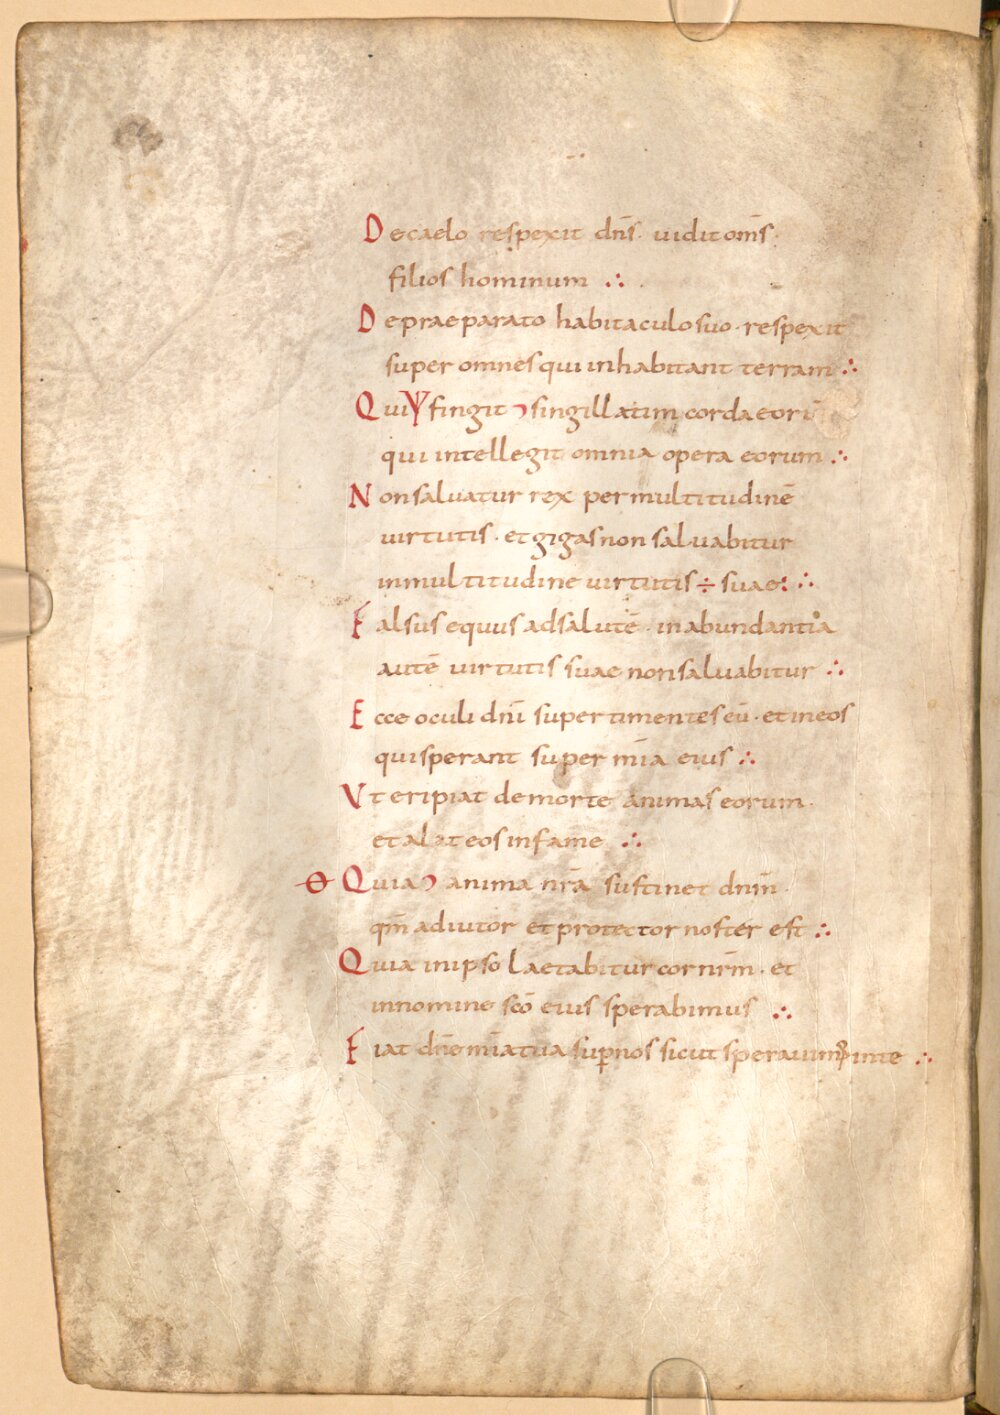 De caelo respexit dn̄s· uidit om̄s·
filios hominum ∴
De praeparato habitaculo suo· respexit
super omnes qui inhabitant terram ∴
Qui finγit singillatim corda eorū
qui intellegit omnia opera eorum ∴
Non saluatur rex per multitudinē
uirtutis· et gigas non saluabitur
in multitudine uirtutis ÷ suae: ∴
Falsus equus ad salutē· in abundantia
autē uirtutis suae non saluabitur ∴
Ecce oculi dn̄i super timentes eū· et in eos
qui sperant super mīa eius ∴
Vt eripiat de morte animas eorum·
et alat eos in fame ∴
Quia anima nr̄a sustinet dnm̄·
qm̄ adiutor et protector noster est ∴
Quia in ipso laetabitur cor nrm̄· et
in nomine scō eius sperabimus ∴
Fiat dn̄e mīa tua suꝑ nos sicut sperauimꝰ in te ∴